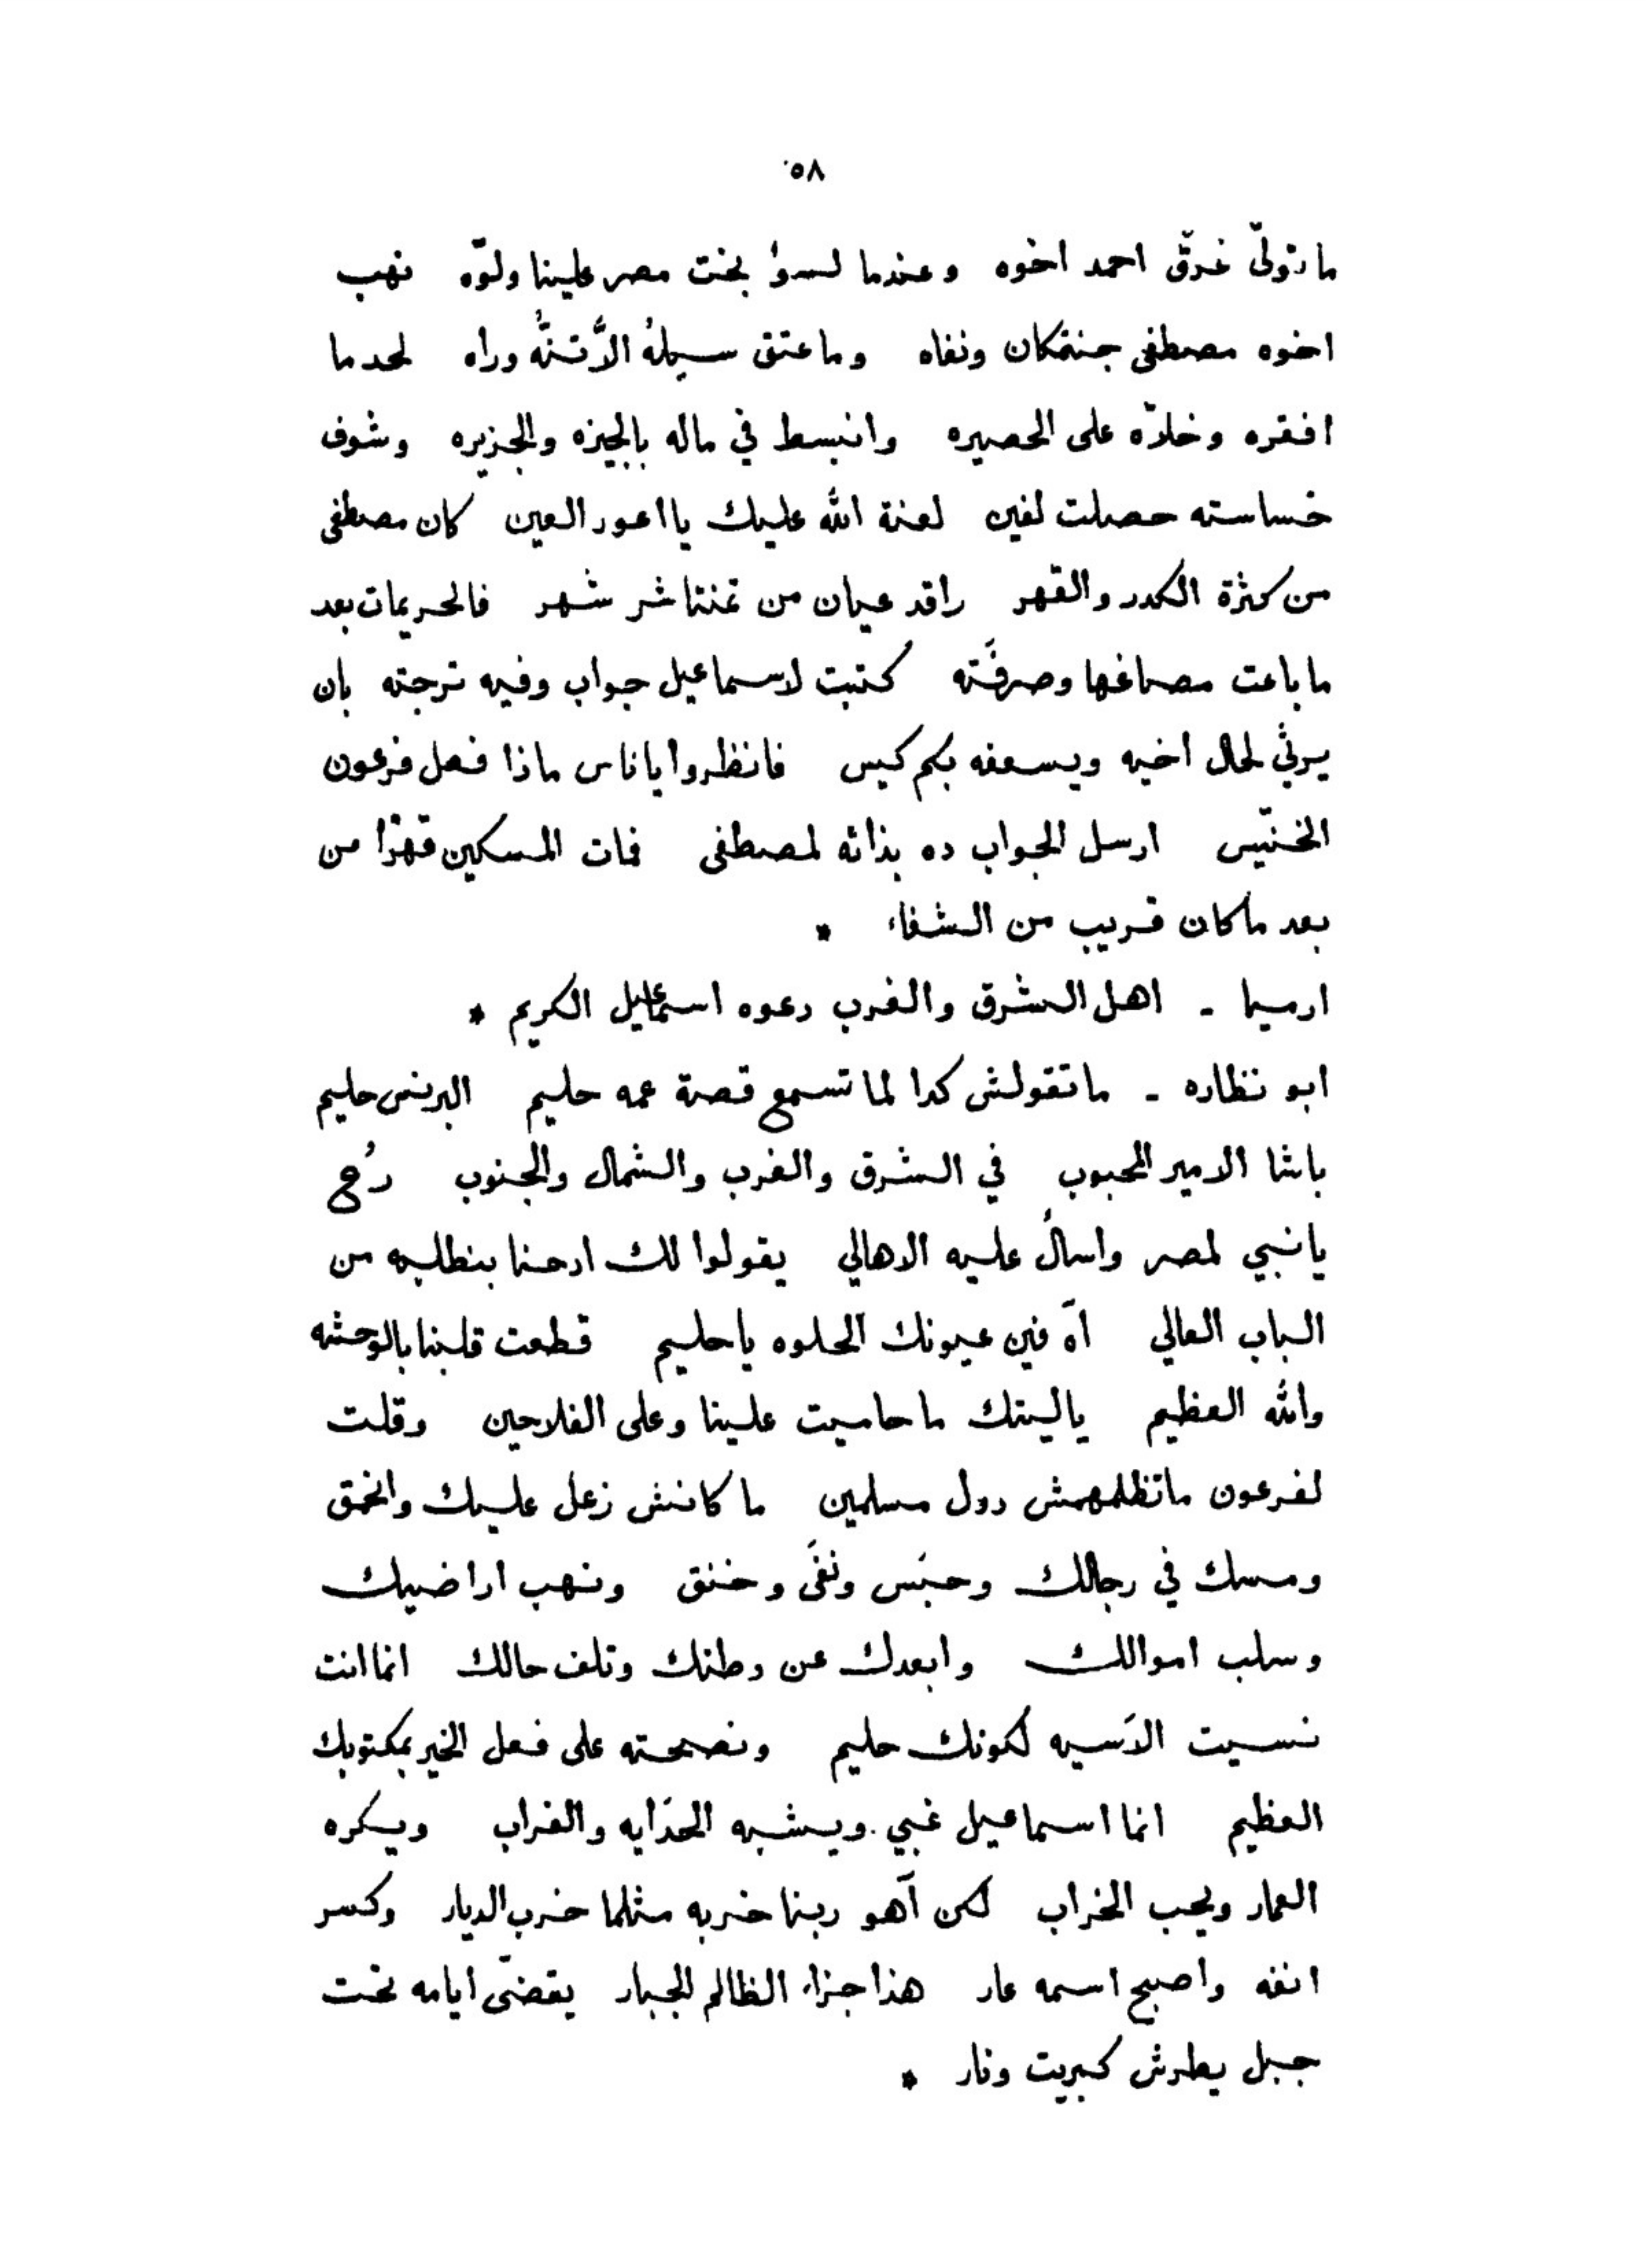 ٥٨
ما تولّى غرّق احمد اخوه وعندما لسوا بخت مصر علينا ولّوه نهب
اخوه مصطفى جنتمكان ونفاه وما عتق سبيلهُ الاَّ تنُّه وراه لحد ما
افقره وخلاّه على الحصيره وانبسط في ماله بالجيزه والجزيره وشوف
خساسته حصلت لفين لعنة الله عليك يا اعور العين كان مصطفى
من كثرة الكدر والقهر راقد عيان من تمنتاشر شهر فالحريمات بعد
ما باعت مصاغها وصرفَته كتبت لاسماعيل جواب وفيه ترجته بان
يرثي لحال اخيه ويسعفه بكم كيس فانظروا يا ناس ماذا فعل فرعون
الخنّيس ارسل الجواب ده بذاته لمصطفى فمات المسكين قهرًا من
بعد ما كان قريب من الشفاء *
ارميا - اهل الشرق والغرب دعوه اسماعيل الكريم *
ابو نظاره - ما تقولش كدا لما تسمع قصة عمه حليم البرنس حليم
باشا الامير المحبوب في الشرق والغرب والشمال والجنوب رُح
يا نبي لمصر واسأل عليه الاهالي يقولوا لك ادحنا بنطلبه من
الباب العالي آه فين عيونك الحلوه يا حليم قطعت قلبنا بالوحشه
والله العظيم يا ليتك ما حاميت علينا وعلى الفلاحين وقلت
لفرعون ما تظلمهمش دول مسلمين ما كانش زعل عليك وانحمق
ومسك في رجالك وحبَس ونفَى وخنق ونهب اراضيك
وسلب اموالك وابعدك عن وطنك وتلف حالك انما انت
نسيت الاَسيه لكونك حليم ونصحته على فعل الخير بمكتوبك
العظيم انما اسماعيل غبي ويشبه الحدَايه والغراب ويكره
العمار ويحب الخراب لكن آهو ربنا خربه مثلما خرب الديار وكسر
انفه واصبح اسمه عار هذا جزاء الظالم الجبار يقضّى ايامه تحت
جبل يطرش كبريت ونار *